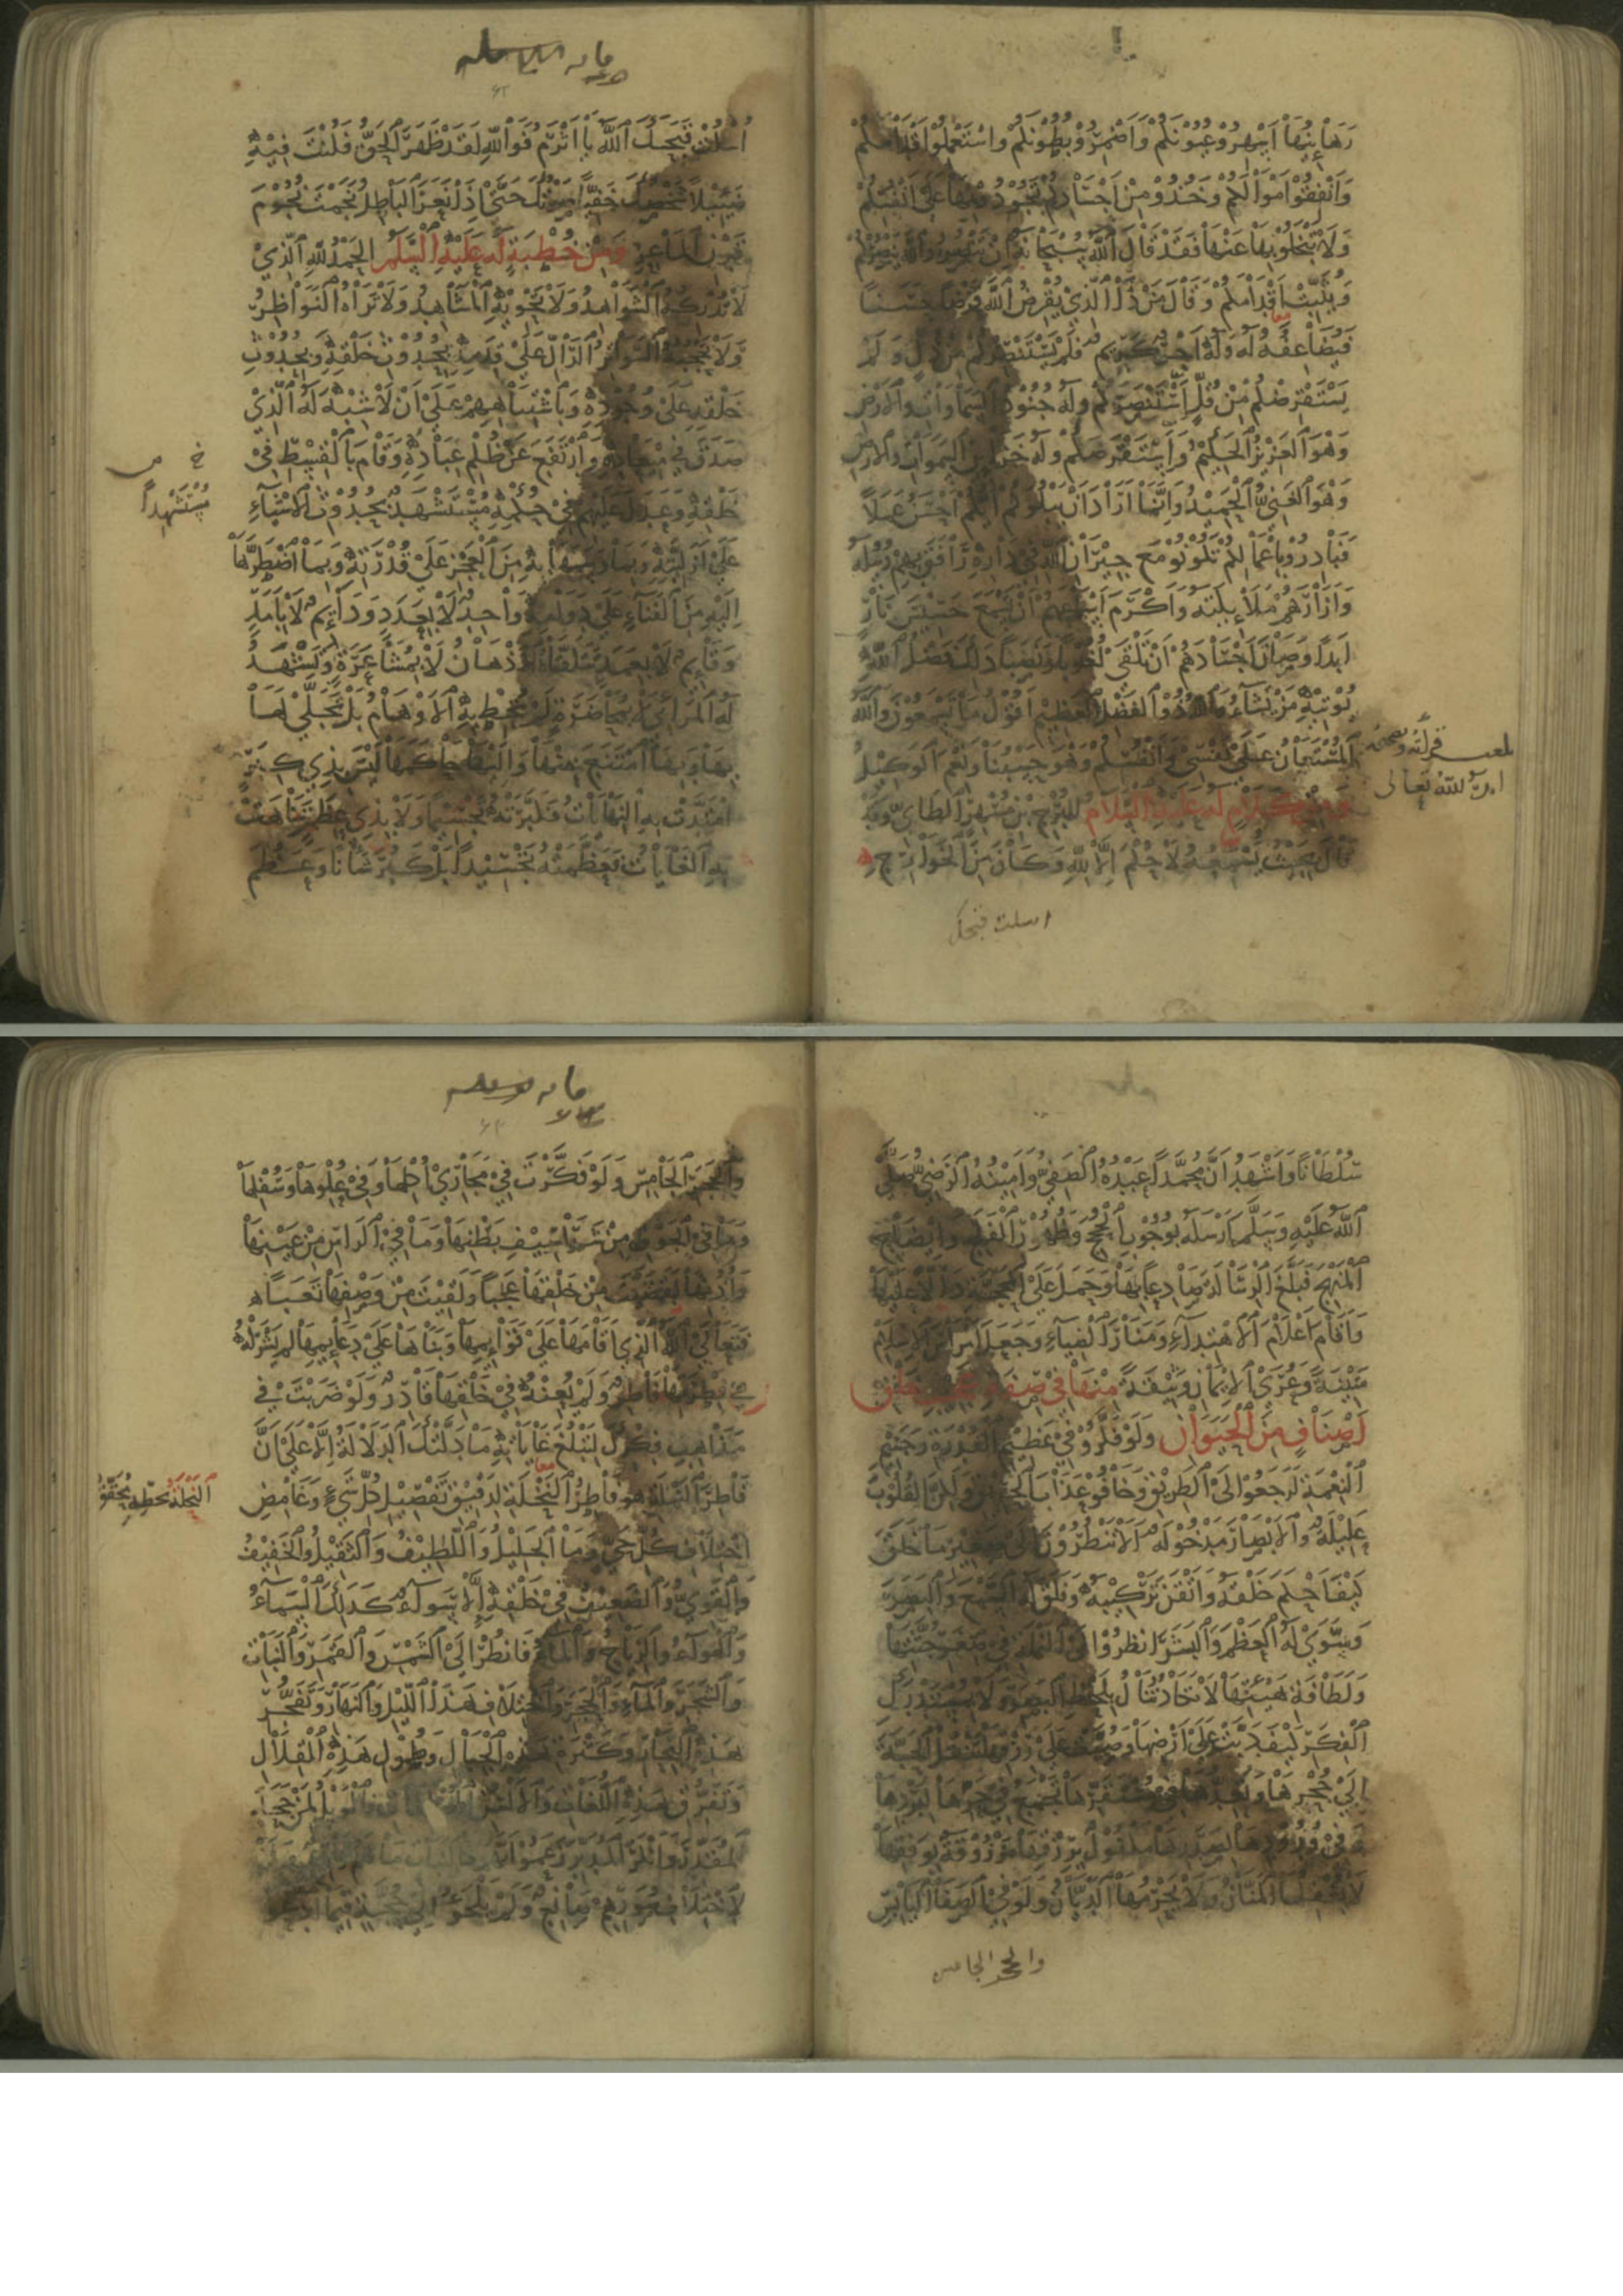 رهائنها اسهروا عيونكم واضمروا بطونكم واستعملوا اقدامكم
وانفقوا اموالكم وخذوا من اجسادكم تجودوا بها على انفسكم
ولا تبخلوا بها عنها فقد قال الله سبحانه ان تنصروا الله ينصركم
ويثبت اقدامكم وقال من ذا الذي يقرض الله قرضا حسنا
فيضاعفه له وله اجر كريم فلم يستنصركم من ذل ولم
يستقرضكم من قل استنصركم وله جنود السموات والارض
وهو العزيز الحكيم واستقرضكم وله خزائن السموات والارض
وهو الغني الحميد وانما اراد ان يبلوكم ايكم احسن عملا
فبادروا باعمالكم تكونوا مع جيران الله في داره رافق بهم رسله
وازارهم ملائكته واكرم اسماعهم ان تسمع حسيس نار
ابدا وصان اجسادهم ان تلقى لغوبا ونصبا ذلك فضل الله
يؤتيه من يشاء والله ذو الفضل العظيم اقول ما تسمعون والله
المستعان على نفسي وانفسكم وهو حسبنا ونعم الوكيل
ومن كلام له عليه السلام للبرج بن مسهر الطائي وقد
قال بحيث يسمعه لا حكم الا لله وكان من الخوارج
ايده الله تعالى
اسكت قبحك
اسكت قبحك الله يا اثرم فوالله لقد ظهر الحق فكنت فيه
ضئيلا شخصك خفيا صوتك حتى اذا نعر الباطل نجمت نجوم
قرن الماعز ومن خطبة له عليه السلم الحمد لله الذي
لا تدركه الشواهد ولا تحويه المشاهد ولا تراه النواظر
ولا تحجبه السواتر الدال على قدمه بحدوث خلقه وبحدوث
خلقه على وجوده وباشتباههم على ان لا شبه له الذي
صدق في ميعاده وارتفع عن ظلم عباده وقام بالقسط في
خلقه وعدل عليهم في حكمه مستشهد بحدوث الاشياء
مستشهدا
على ازليته وبما وسمها به من العجز على قدرته وبما اضطرها
اليه من الفناء على دوامه واحد لا بعدد ودائم لا بامد
وقائم لا بعمد تتلقاه الاذهان لا بمشاعرة وتشهد
له المرائي لا بمحاضرة لم تحط به الاوهام بل تجلى لها
بها وبها امتنع منها واليها حاكمها ليس بذي كبر
امتدت به النهايات فكبرته تجسيما ولا بذي عظم تناهت
به الغايات فعظمته تجسيدا بل كبر شانا وعظم
سلطانا واشهد ان محمدا عبده الصفي وامينه الرضي صلى
الله عليه وسلم ارسله بوجوب الحجج وظهور الفلج وايضاح
المنهج فبلغ الرسالة صادعا بها وحمل على المحجة دالا عليها
واقام اعلام الاهتداء ومنار الضياء وجعل امراس الاسلام
متينة وعرى الايمان وثيقة منها في صفة عجيب خلق
اصناف من الحيوان ولو فكروا في عظيم القدرة وجسيم
النعمة لرجعوا الى الطريق وخافوا عذاب الحريق ولكن القلوب
عليلة والابصار مدخولة الا تنظرون الى صغير ما خلق
كيف احكم خلقه واتقن تركيبه وفلق له السمع والبصر
وسوى له العظم والبشر انظروا الى النملة في صغر جثتها
ولطافة هيئتها لا تكاد تنال بلحظ البصر ولا بمستدرك
الفكر كيف دبت على ارضها وصبت على رزقها تنقل الحبة
الى جحرها وتعدها في مستقرها تجمع في حرها لبردها
وفي ورودها لصدرها مكفول برزقها مرزوقة بوفقها
لا يغفلها المنان ولا يحرمها الديان ولو في الصفا اليابس
والحجر الجامس
والحجر الجامس ولو فكرت في مجاري اكلها وفي علوها وسفلها
وما في الجوف من شراسيف بطنها وما في الراس من عينها
واذنها لقضيت من خلقها عجبا ولقيت من وصفها تعبا
فتعالى الذي اقامها على قوائمها وبناها على دعائمها لم يشركه
في فطرتها فاطر ولم يعنه في خلقها قادر ولو ضربت في
مذاهب فكرك لتبلغ غاياته ما دلتك الدلالة الا على ان
فاطر النملة هو فاطر النخلة لدقيق تفصيل كل شيء وغامض
اختلاف كل حي وما الجليل واللطيف والثقيل والخفيف
والقوي والضعيف في خلقه الا سواء كذلك السماء
والهواء والرياح والماء فانظر الى الشمس والقمر والنبات
والشجر والماء والحجر واختلاف هذا الليل والنهار وتفجر
هذه البحار وكثرة هذه الجبال وطول هذه القلال
وتفرق هذه اللغات والالسن المختلفات فالويل لمن جحد
المقدر وانكر المدبر زعموا انهم كالنبات ما لهم زارع ولا
لاختلاف صورهم صانع ولم يلجئوا الى حجة فيما ادعوا